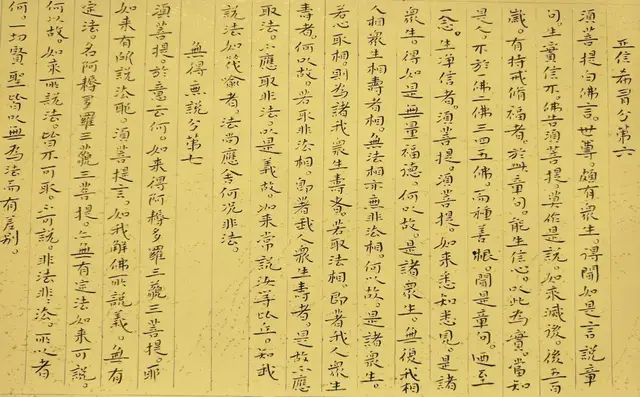 正信希有分第六
須菩提白佛言。世尊。頗有衆生。得聞如是言說章
句。生實信不。佛告須菩提。莫作是說。如來滅後。後五百
歲。有持戒脩福者。於此章句。能生信心。以此為實。當知
是人。不於一佛二佛三四五佛。而種善根。聞是章句。迺至
一念。生淨信者。須菩提。如來悉知悉見。是諸
衆生。得如是無量福德。何以故。是諸衆生。無復我相
人相衆生相壽者相。無法相亦無非法相。何以故。是諸衆生。
若心取相則為諸我衆生壽者。若取法相。即著我人衆生
壽者。何以故。若取非法相。即著我人衆生壽者。是故不應
取法。不應取非法。以是義故。如來常說汝等比丘。知我
說法如筏喻者法尚應舍何況非法。
無得無說分第七
須菩提。於意云何。如來得阿耨多羅三藐三菩提。耶
如來有所說法耶。須菩提言。如我解佛所說義。無有
定法。名阿耨多羅三藐三菩提。亦無有定法如來可說。
何以故。如來所說法。皆不可取。不可說。非法非法。所以者
何。一切賢聖皆以無為法而有差別。